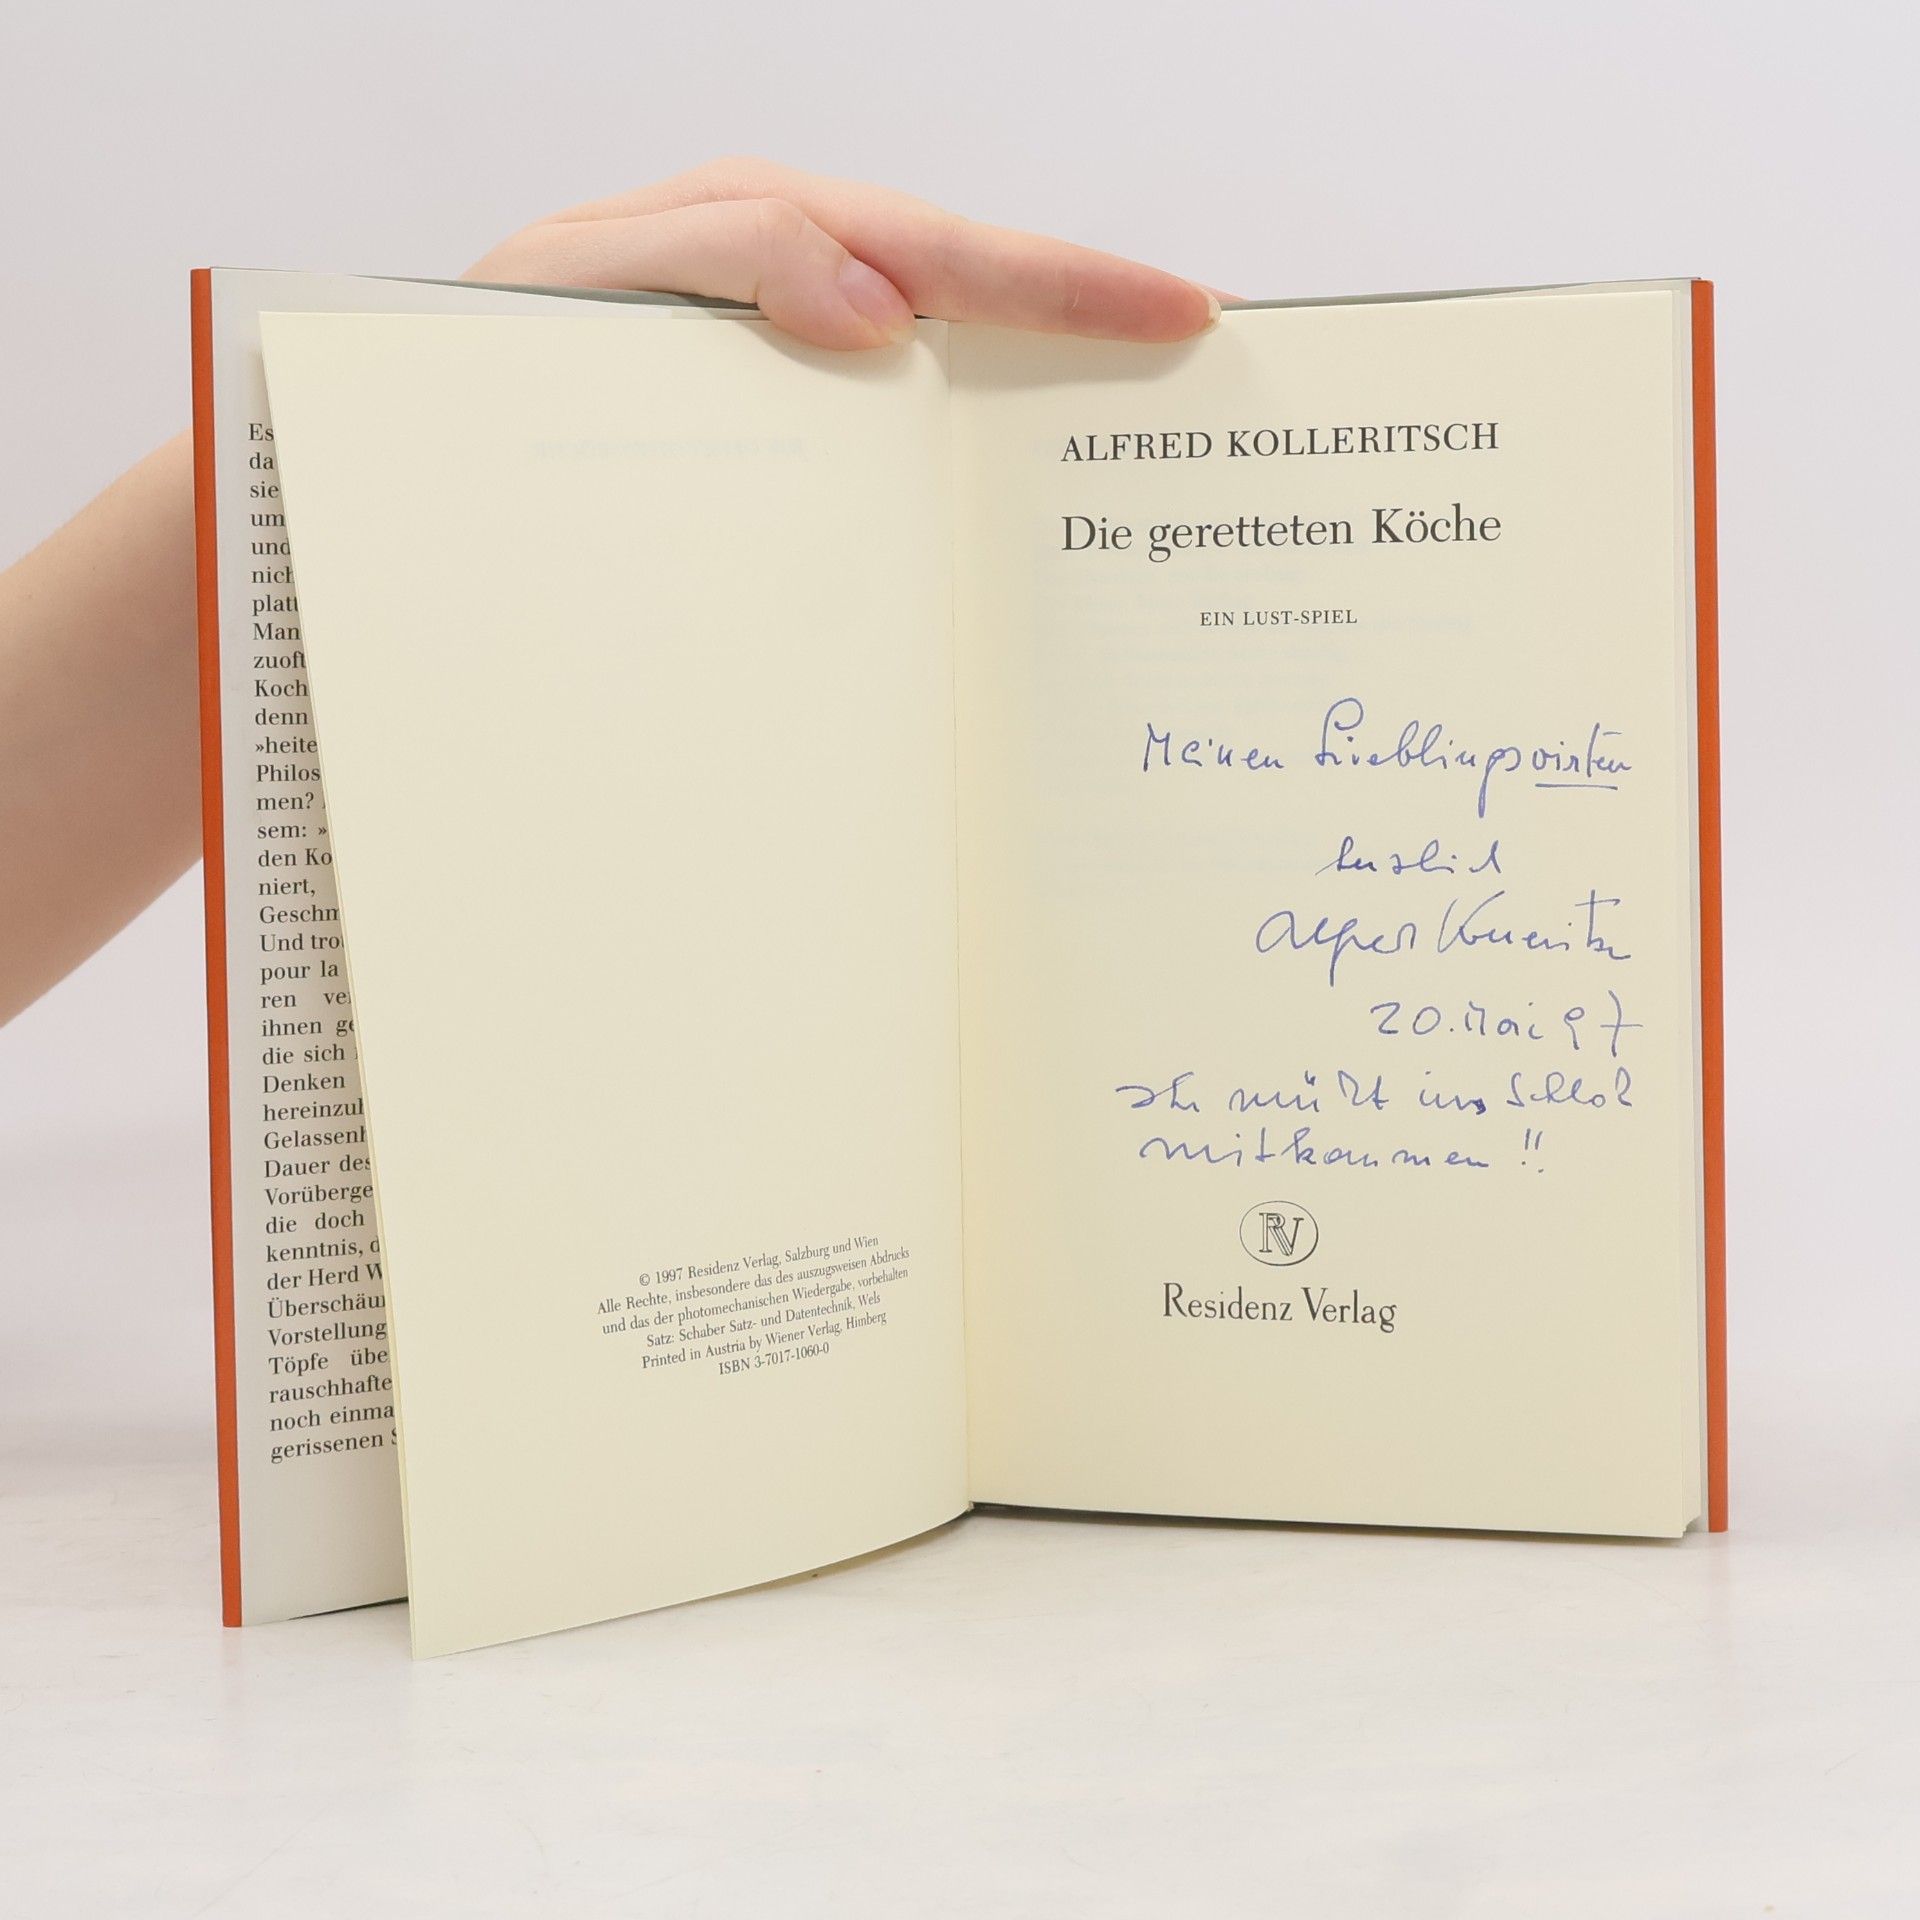 Es
da
sie
um
und
nich
platt
Man
zuoft
Koch
denn
»heite
Philos
men?
sem: »
den Ko
niert,
Geschm
Und tro
pour la
ren ve
ihnen ge
die sich
Denken
hereinzuh
Gelassenh
Dauer des
Vorüberge
die doch
kenntnis, d
der Herd W
Überschäu
Vorstellung
Töpfe übe
rauschhafte
noch einma
gerissenen S
© 1997 Residenz Verlag, Salzburg und Wien
Alle Rechte, insbesondere das des auszugsweisen Abdrucks
und das der photomechanischen Wiedergabe, vorbehalten
Satz: Schaber Satz- und Datentechnik, Wels
Printed in Austria by Wiener Verlag, Himberg
ISBN 3-7017-1060-0
ALFRED KOLLERITSCH
Die geretteten Köche
EIN LUST-SPIEL
Meinen Lieblingswirten
herzlich
Alfred Kolleritsch
20. Mai 97
Ihr müßt ins Schloß
mitkommen!!
RV
Residenz Verlag